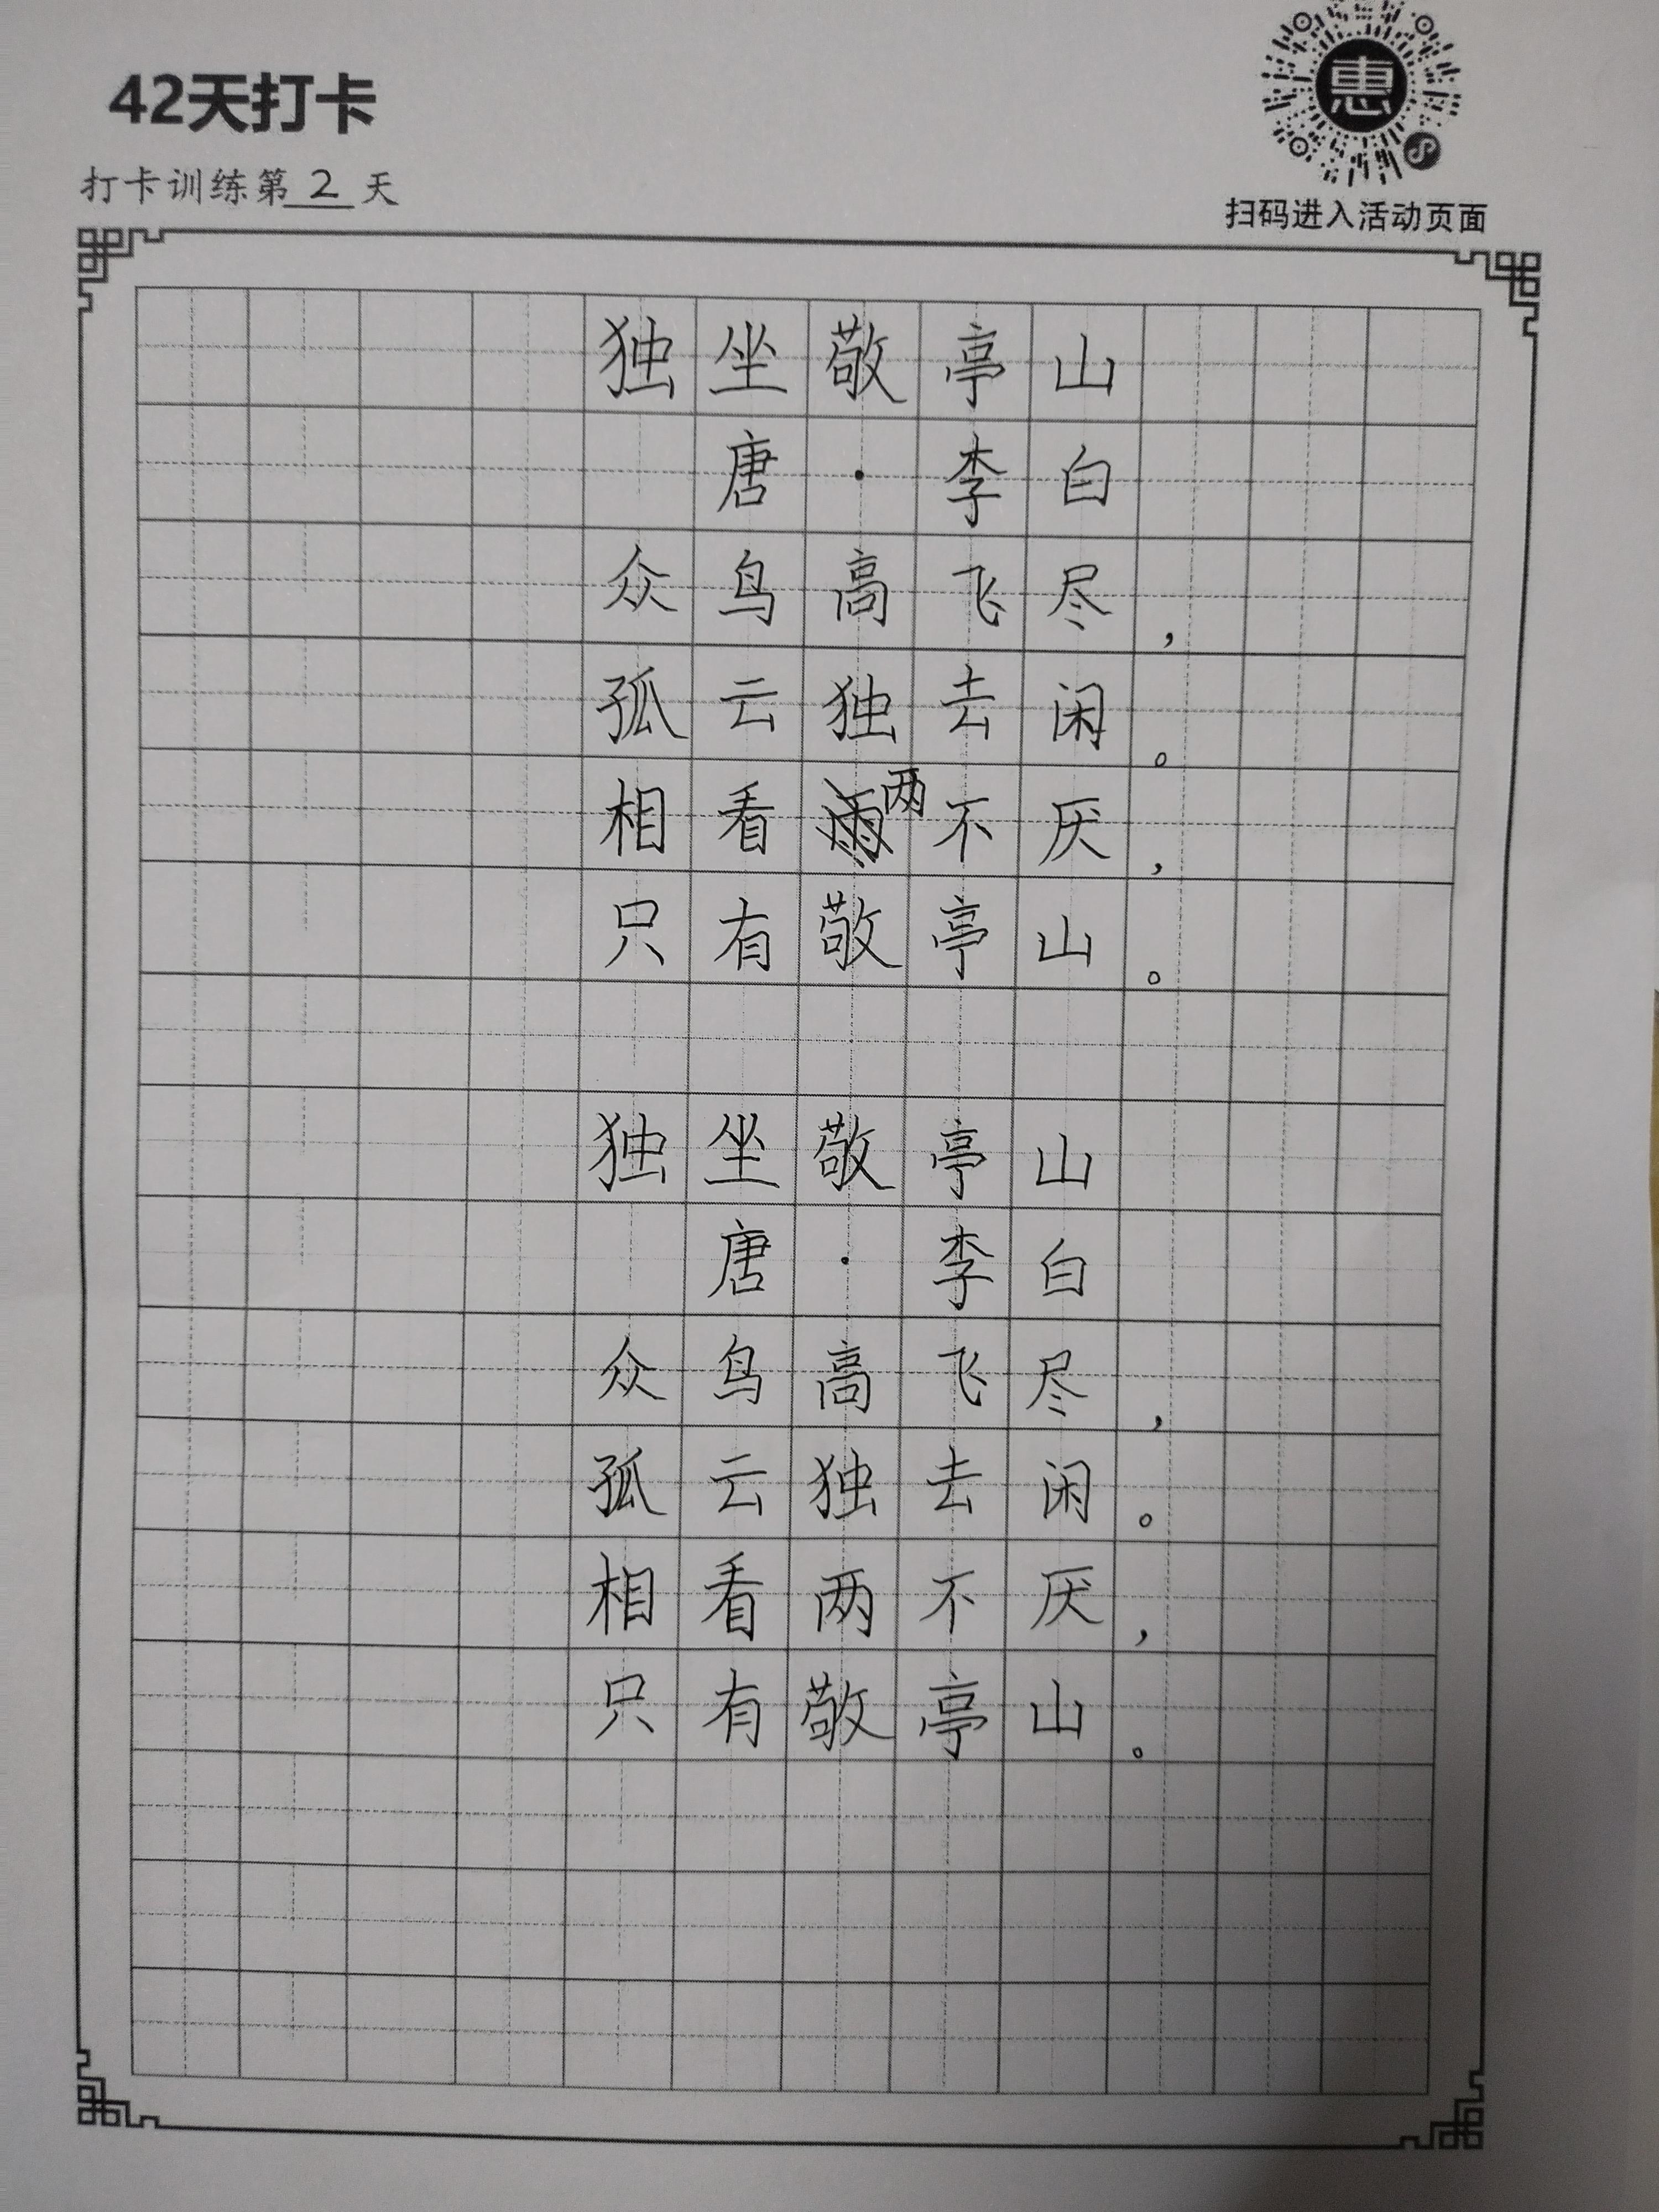 42天打卡
惠
打卡训练第2天
扫码进入活动页面
独坐敬亭山
唐·李白
众鸟高飞尽，
孤云独去闲。
相看两不厌，
只有敬亭山。
独坐敬亭山
唐·李白
众鸟高飞尽，
孤云独去闲。
相看两不厌，
只有敬亭山。